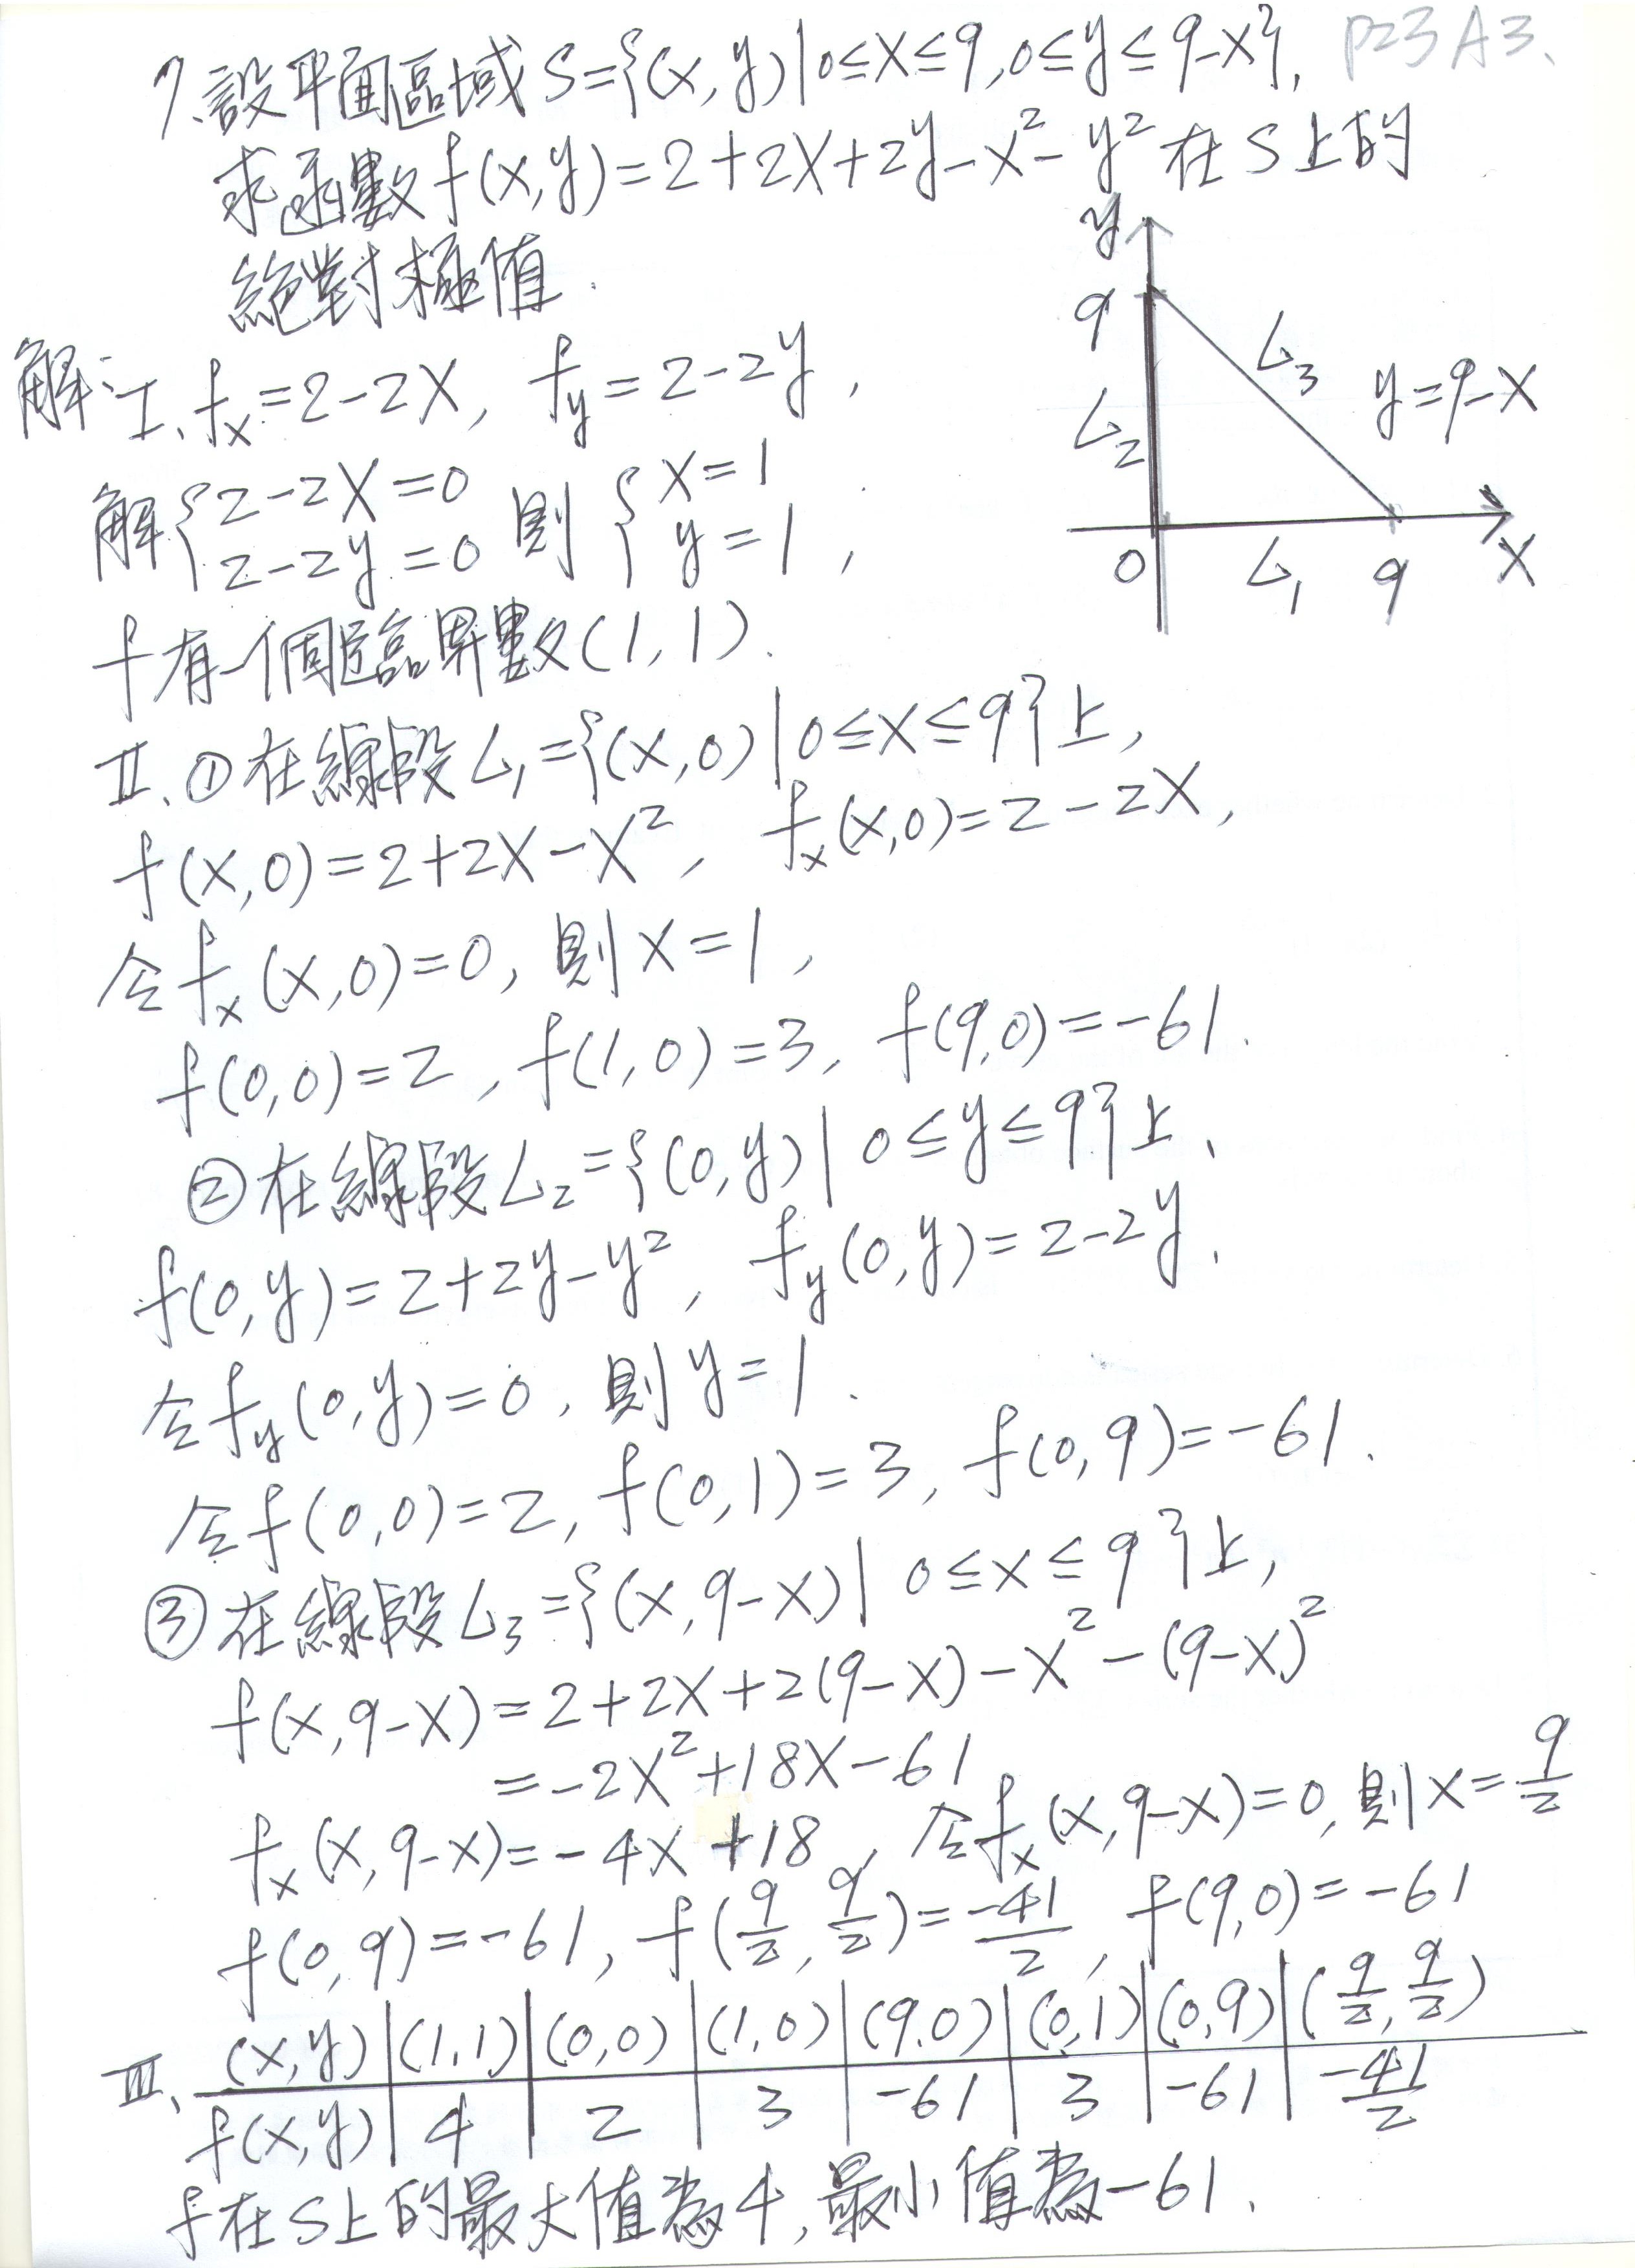 7.設平面區域S={(x,y)|0≤x≤9,0≤y≤9-x}, P23 A3.
求函數f(x,y)=2+2x+2y-x²-y²在S上的
絕對極值.
y
9
L₃
y=9-x
L₂
0 L₁ 9 x
解:I、fx=2-2x, fy=2-2y,
解{2-2x=0 則{x=1
2-2y=0 y=1,
f有一個臨界數(1,1).
II、①在線段L₁={(x,0)|0≤x≤9}上,
f(x,0)=2+2x-x², fx(x,0)=2-2x,
令fx(x,0)=0, 則x=1,
f(0,0)=2, f(1,0)=3, f(9,0)=-61.
②在線段L₂={(0,y)|0≤y≤9}上,
f(0,y)=2+2y-y², fy(0,y)=2-2y.
令fy(0,y)=0, 則y=1.
令f(0,0)=2, f(0,1)=3, f(0,9)=-61.
③在線段L₃={(x,9-x)|0≤x≤9}上,
f(x,9-x)=2+2x+2(9-x)-x²-(9-x)²
=-2x²+18x-61
fx(x,9-x)=-4x+18, 令fx(x,9-x)=0, 則x=9/2
f(0,9)=-61, f(9/2,9/2)=-41/2, f(9,0)=-61
III、(x,y)|(1,1)|(0,0)|(1,0)|(9,0)|(0,1)|(0,9)|(9/2,9/2)
f(x,y)|4|2|3|-61|3|-61|-41/2
f在S上的最大值為4,最小值為-61.